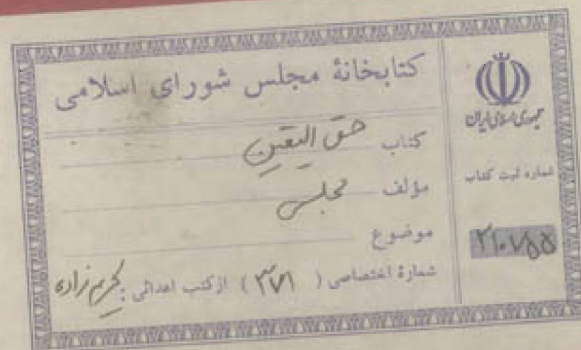 کتابخانهٔ مجلس شورای اسلامی
کتاب حق الیقین
مؤلف مجلسی
موضوع
شمارهٔ اختصاصی ( ۳۷۱ ) از کتب اهدائی :
جمهوری اسلامی ایران
شماره ثبت کتاب
۲۱۰۷۵۵